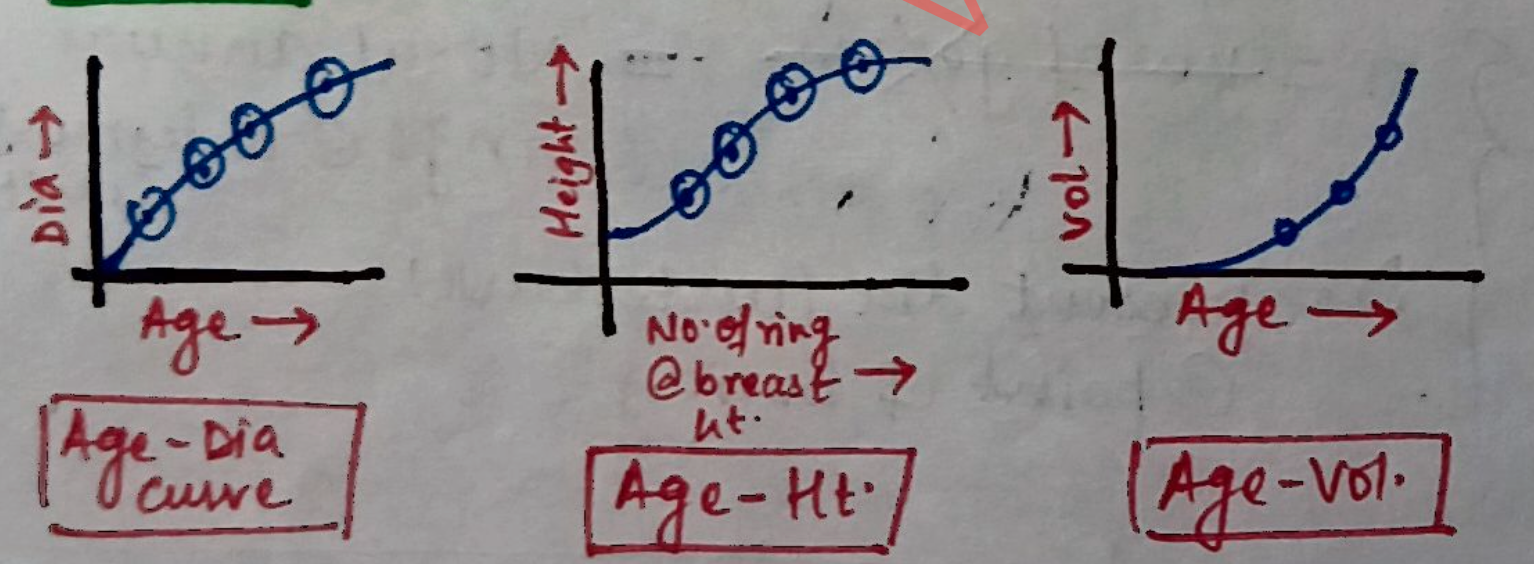 Dia →
Age →
Age-Dia
Curve
Height →
No. of ring
@ breast →
ht.
Age-Ht.
Vol →
Age →
Age-Vol.